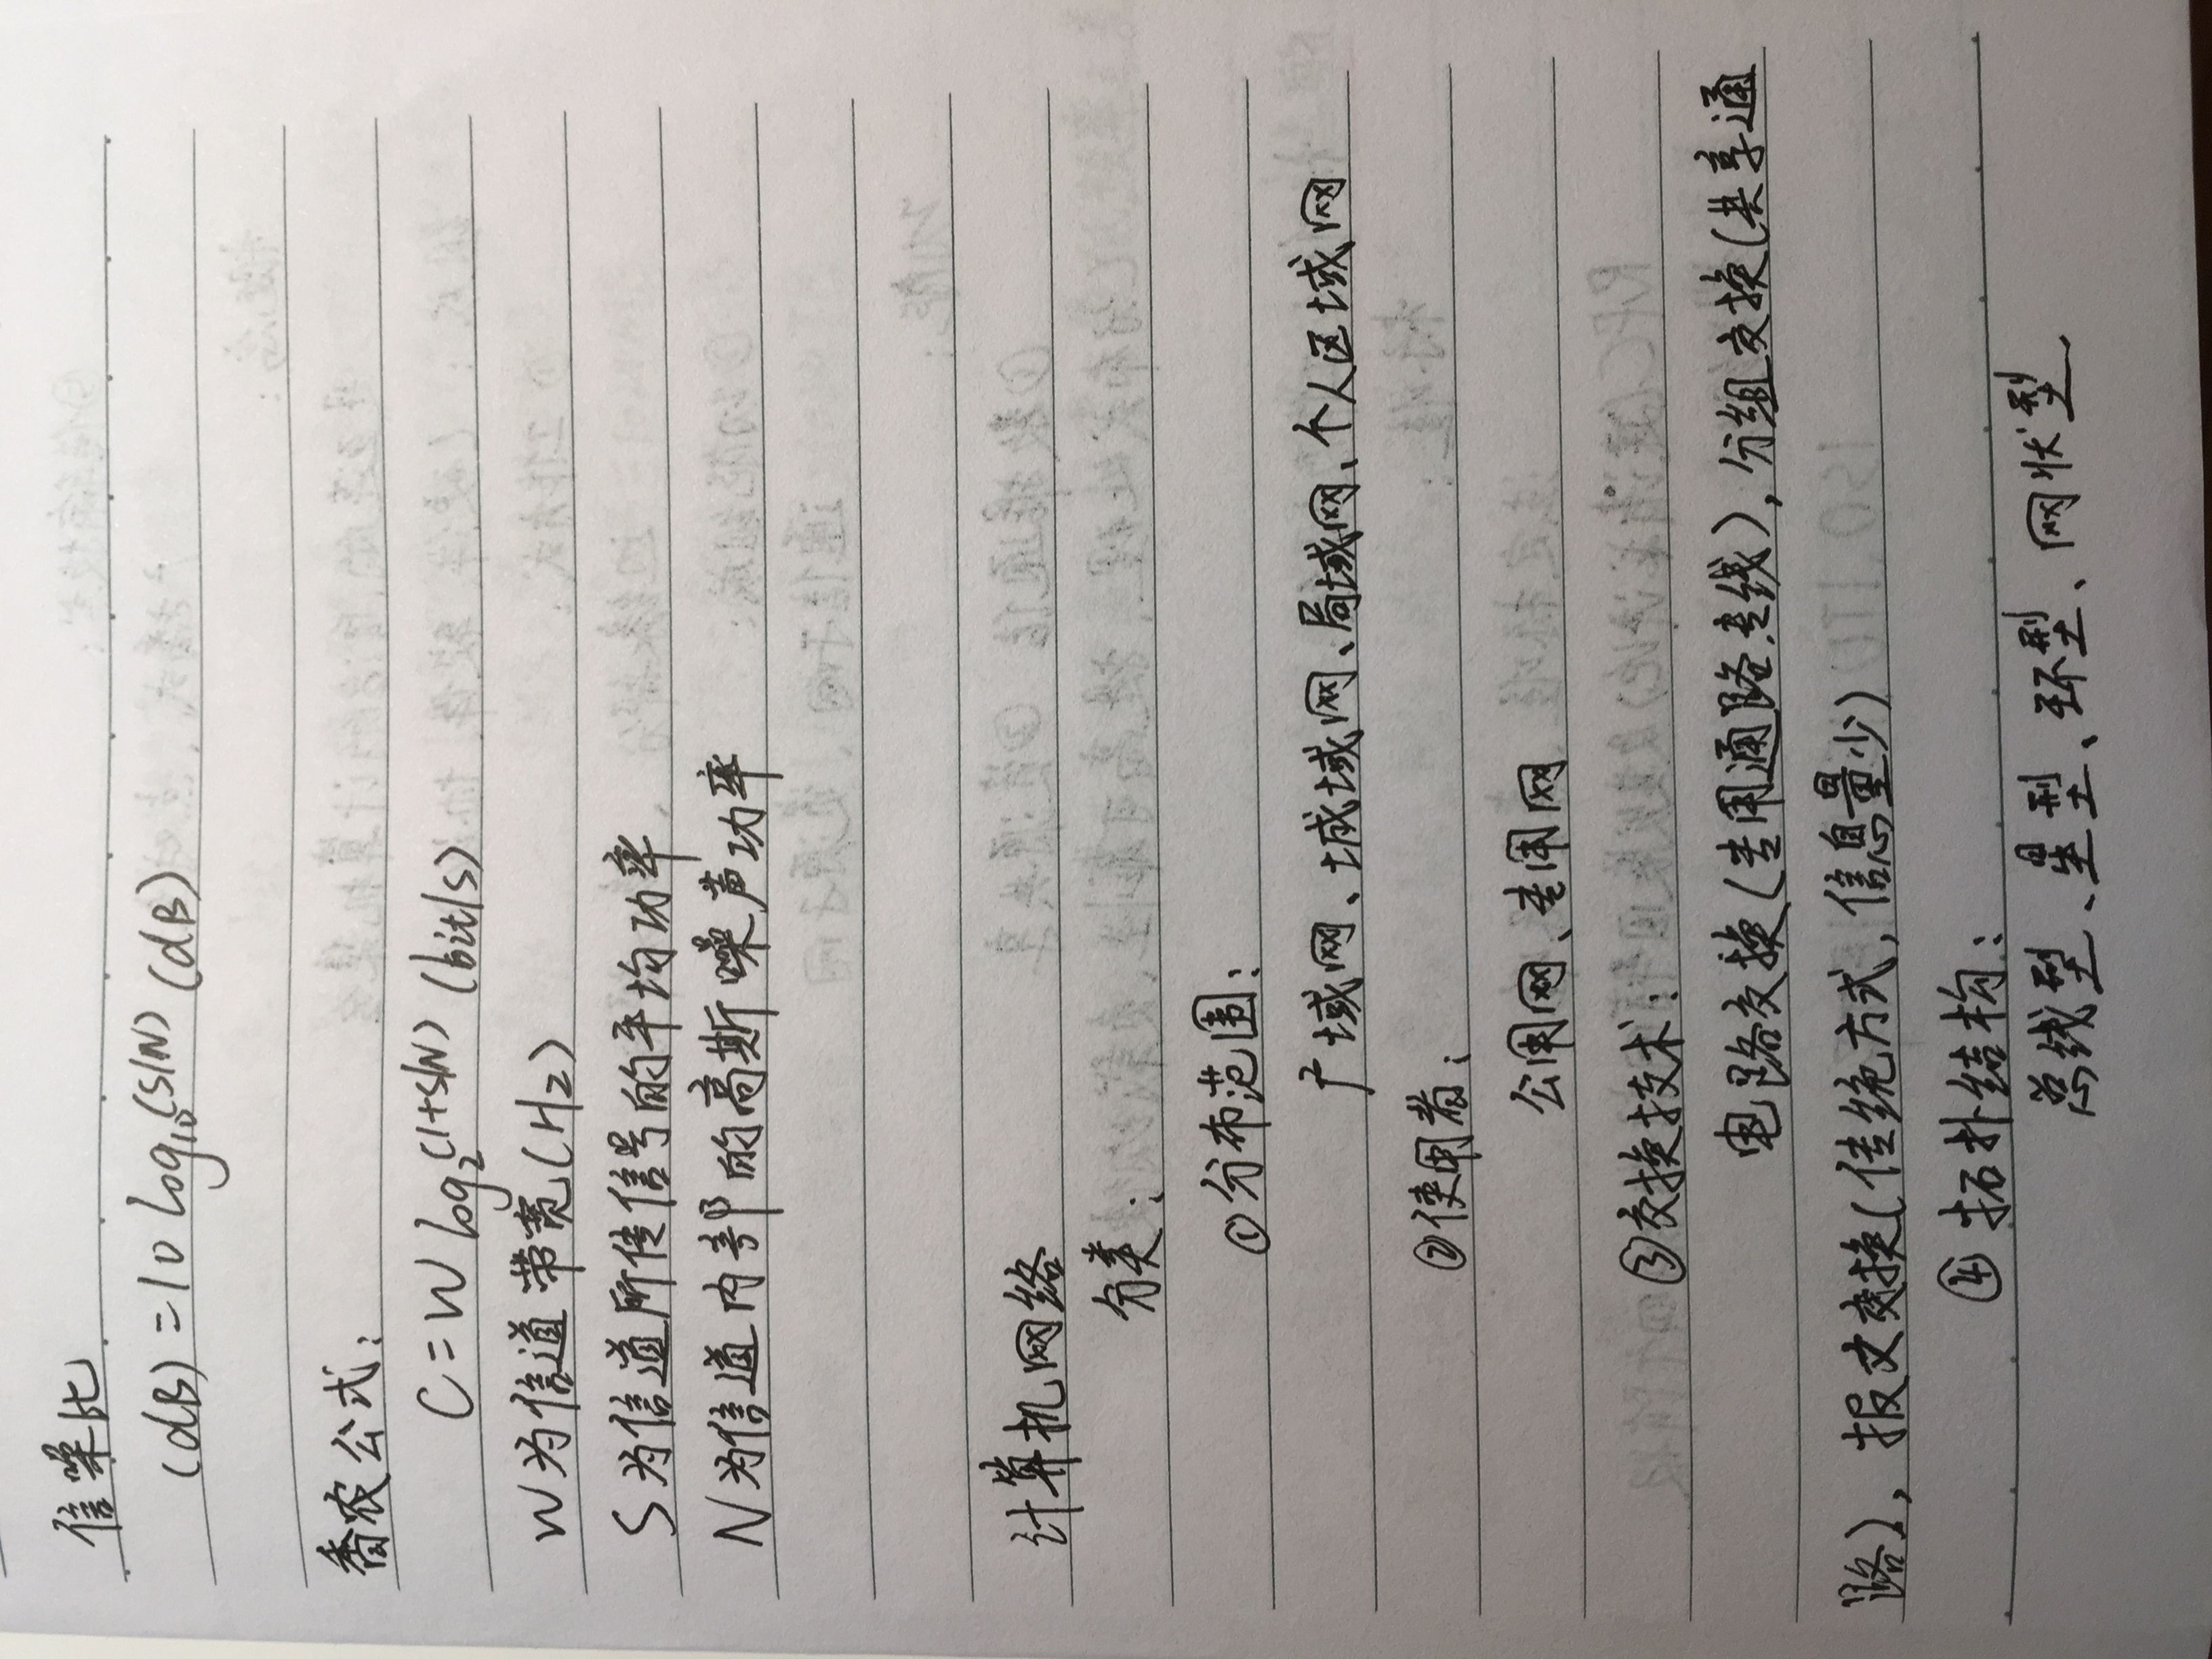 信噪比
(dB)=10 log₁₀(S/N) (dB)
香农公式:
C=W log₂(1+S/N) (bit/s)
W为信道带宽(Hz)
S为信道所传信号的平均功率
N为信道内部的高斯噪声功率
计算机网络
分类:
①分布范围:
广域网、城域网、局域网、个人区域网
②使用者:
公用网、专用网
③交换技术:
电路交换(专用通路.专线),分组交换(共享通
路),报文交换(传统方式,信息量少)
④拓扑结构:
总线型、星型、环型、网状型